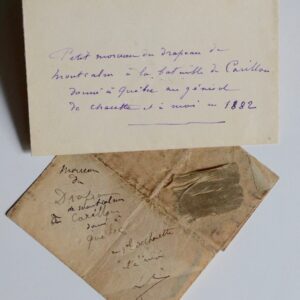 Petit morceau du drapeau de
Montcalm à la bataille de Carillon
donné à Québec au général
de charette et à moi en 1882
morceau
du
Drapeau
de montcalm
Carillon
donné à
Québec
charette